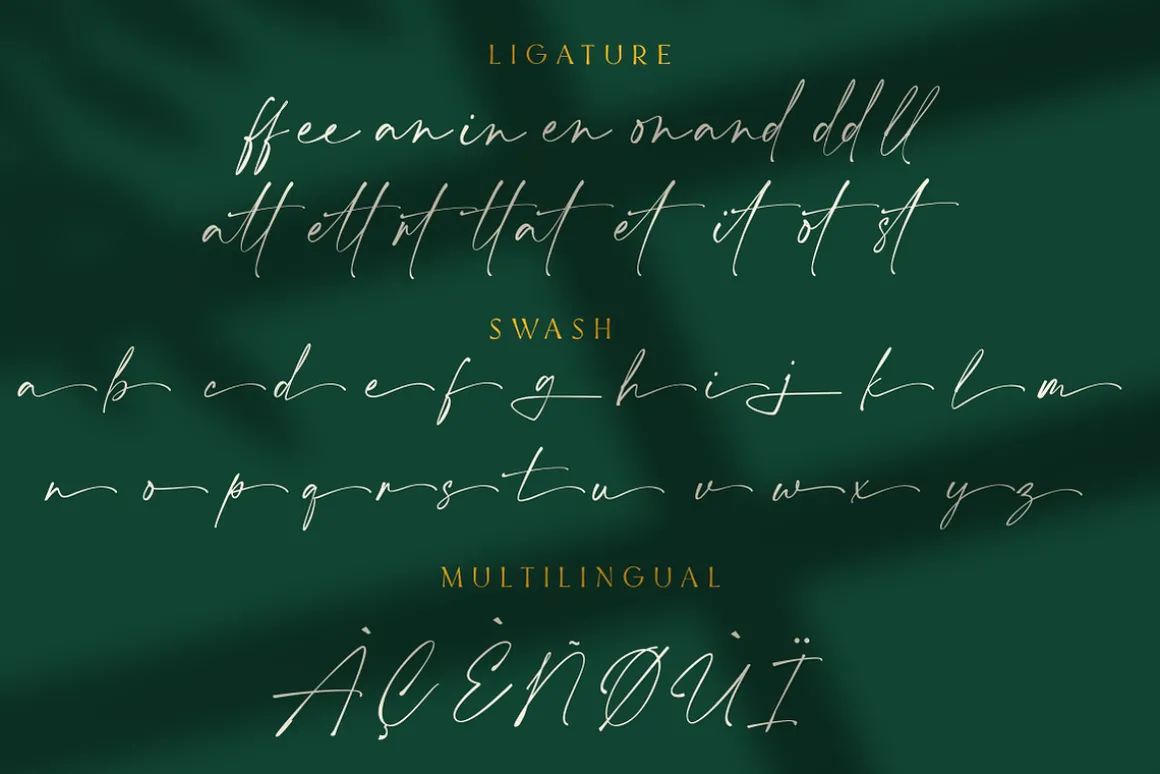 LIGATURE
ff ee an in en on and dd ll
att ett rt tt at et it ot st
SWASH
a b c d e f g h i j k l m
n o p q r s t u v w x y z
MULTILINGUAL
ÀÇÈÑØÙÏ